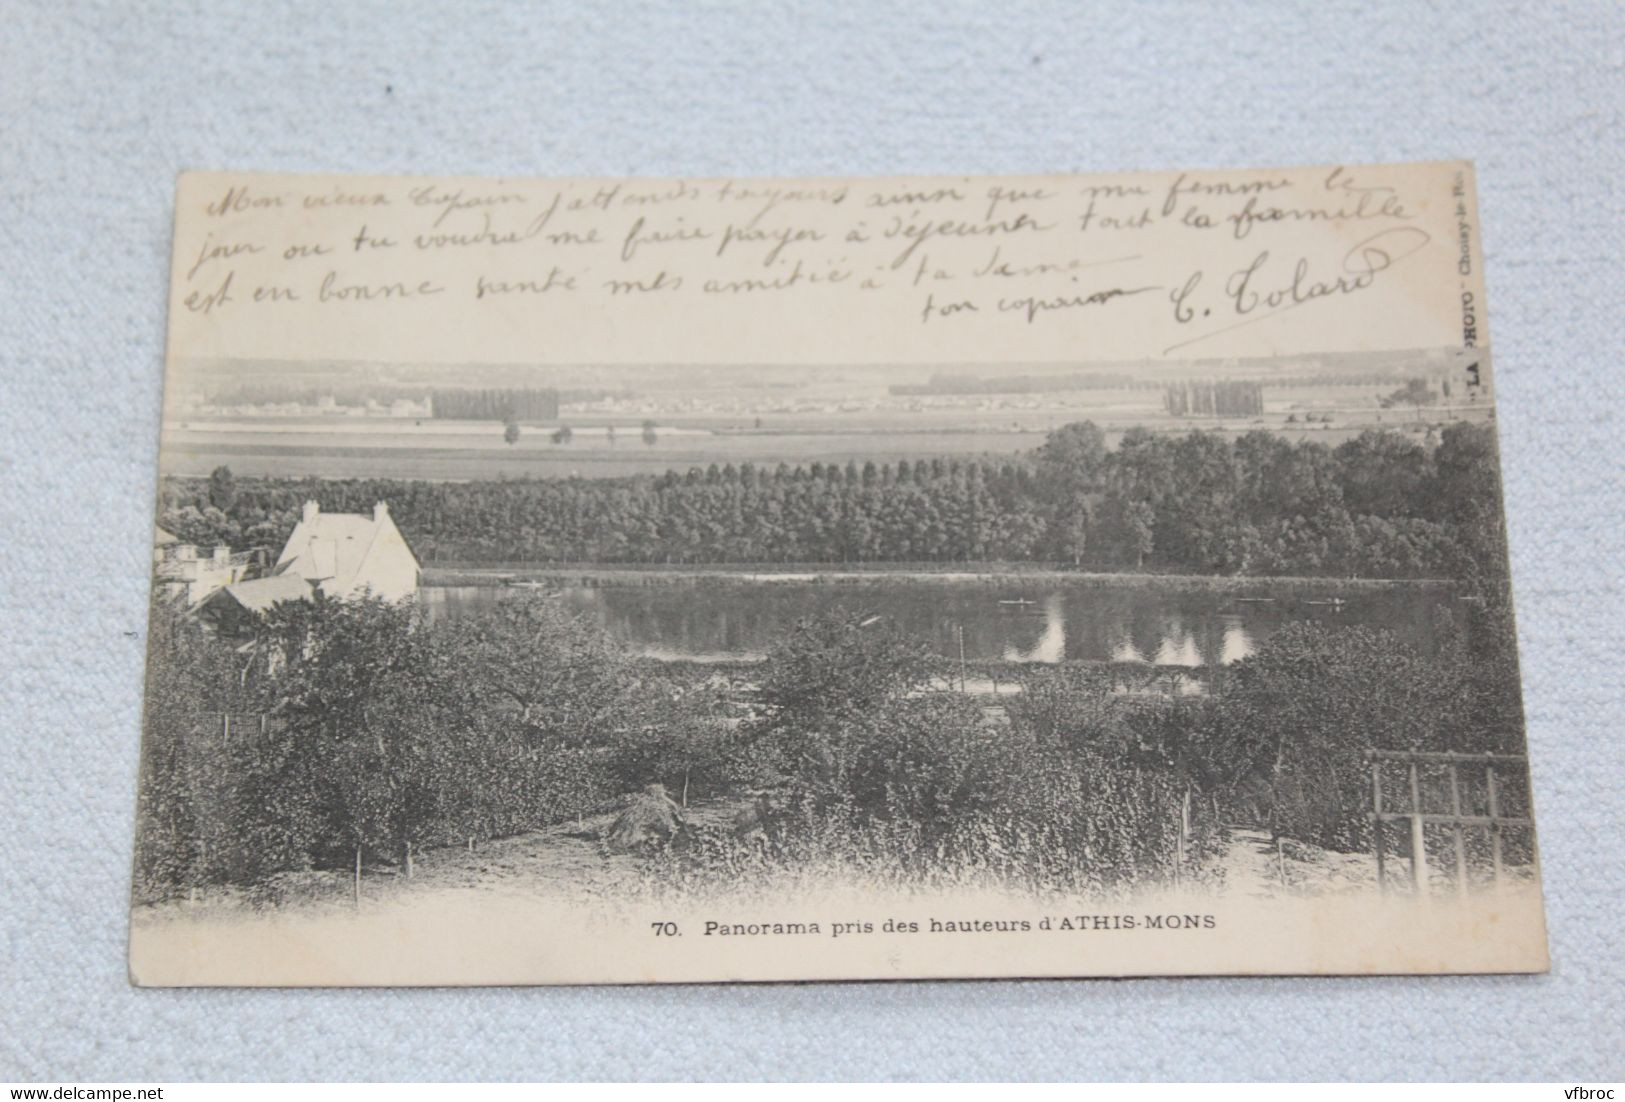 Mon vieux Copain j'attends toujours ainsi que ma femme le
jour ou tu voudra me faire payer à déjeuner tout la famille
est en bonne santé mes amitié à ta dame
ton copain C. Tolard
"LA PHOTO" - Choisy-le-Roi
70. Panorama pris des hauteurs d'ATHIS-MONS
https://www.delcampe.net
vfbroc